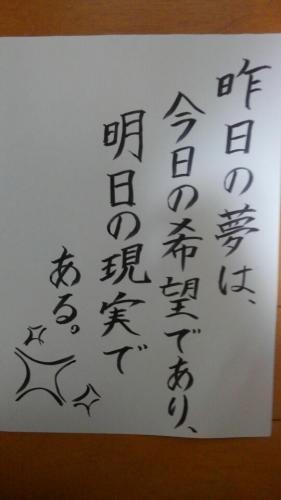 昨日の夢は、
今日の希望であり、
明日の現実で
ある。